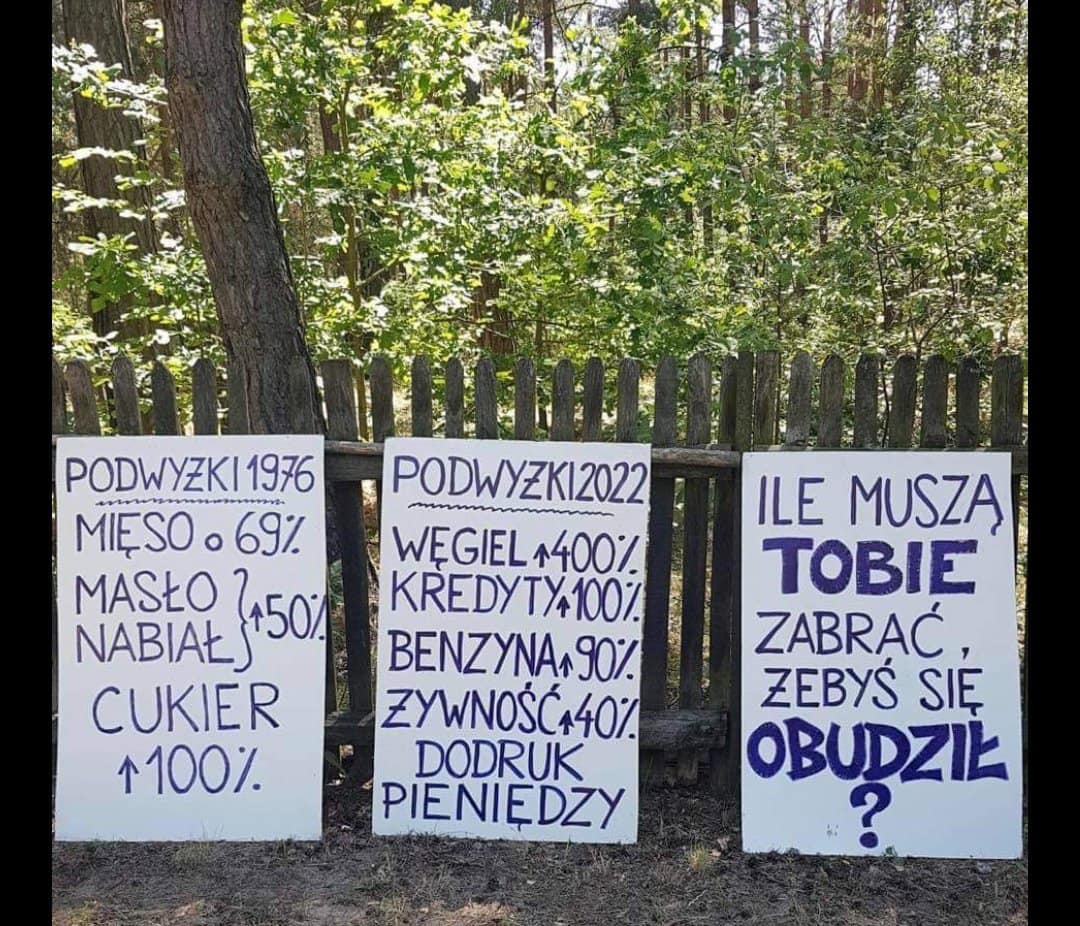 PODWYŻKI 1976
MIĘSO o 69%
MASŁO
NABIAŁ } ↑50%
CUKIER
↑100%
PODWYŻKI 2022
WĘGIEL ↑400%
KREDYTY ↑100%
BENZYNA ↑90%
ŻYWNOŚĆ ↑40%
DODRUK
PIENIĘDZY
ILE MUSZĄ
TOBIE
ZABRAĆ,
ŻEBYŚ SIĘ
OBUDZIŁ
?